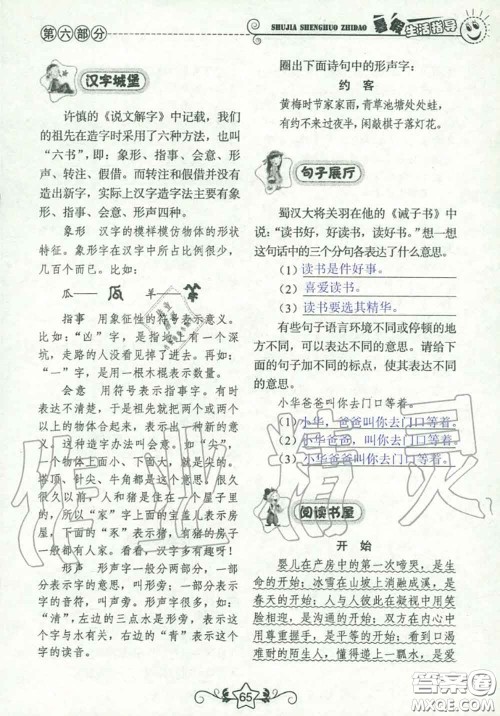 第六部分
SHUJIA SHENGHUO ZHIDAO
暑假生活指导
汉字城堡
许慎的《说文解字》中记载，我们
的祖先在造字时采用了六种方法，也叫
“六书”，即：象形、指事、会意、形
声、转注、假借。而转注和假借并没有
造出新字，实际上汉字造字法主要有象
形、指事、会意、形声四种。
象形 汉字的模样模仿物体的形状
特征。象形字在汉字中所占比例很少，
几百个而已。比如：
瓜—— 羊——
指事 用象征性的符号表示意义。
比如：“凶”字，是指地上有一个深
坑，走路的人没看见掉了进去。再如：
“一”字，是用一根木棍表示数量。
会意 用符号表示指事字。有时
表达不清楚，于是祖先就把两个或两个
以上的物体组合起来，表示出一种新的意
义。这种造字办法叫会意。如“尖”，
一个物体上面小、下面大，就是尖的。
塔顶、针尖、牛角就是这个意思。很久
很久以前，人和猪住在一个屋子里
的，所以“家”字上面的宝盖儿表示
房屋，下面的“豕”表示猪，有房有猪
就成了家。看一看，汉字多有趣呀！
形声 形声字一般分两部分，一部
分表示字的意思，叫形旁；一部分表示
字的音符，叫声旁。形声字很多，如：
“清”，左边的三点水是形旁，表示这
个字与水有关，右边的“青”表示这个
字的读音。
圈出下面诗句中的形声字：
约 客
黄梅时节家家雨，青草池塘处处蛙，
有约不来过夜半，闲敲棋子落灯花。
句子展厅
蜀汉大将关羽在他的《诫子书》中
说：“读书好，好读书，读好书。”想一想
这句话中的三个分句各表达了什么意思。
（1）读书是件好事。
（2）喜爱读书。
（3）读书要选其精华。
有些句子语言环境不同或停顿的地
方不同，可以表达不同的意思。请给下
面的句子加不同的标点，使其表达不同的
意思。
小华爸爸叫你去门口等着。
（1）小华，爸爸叫你去门口等着。
（2）小华爸爸，叫你去门口等着。
（3）小华爸爸叫你去门口等着。
阅读书屋
开 始
婴儿在产房中的第一次啼哭，是生
命的开始；冰雪在山坡上消融成溪，是
春天的开始；人与人彼此的凝视与微笑
相迎，是沟通的开始；双方在内心中
用尊重握手，是平等的开始；看到口渴
难耐的陌生人，懂得递上一瓢水，是爱
65
作业精灵
答案圈
MXQE.COM